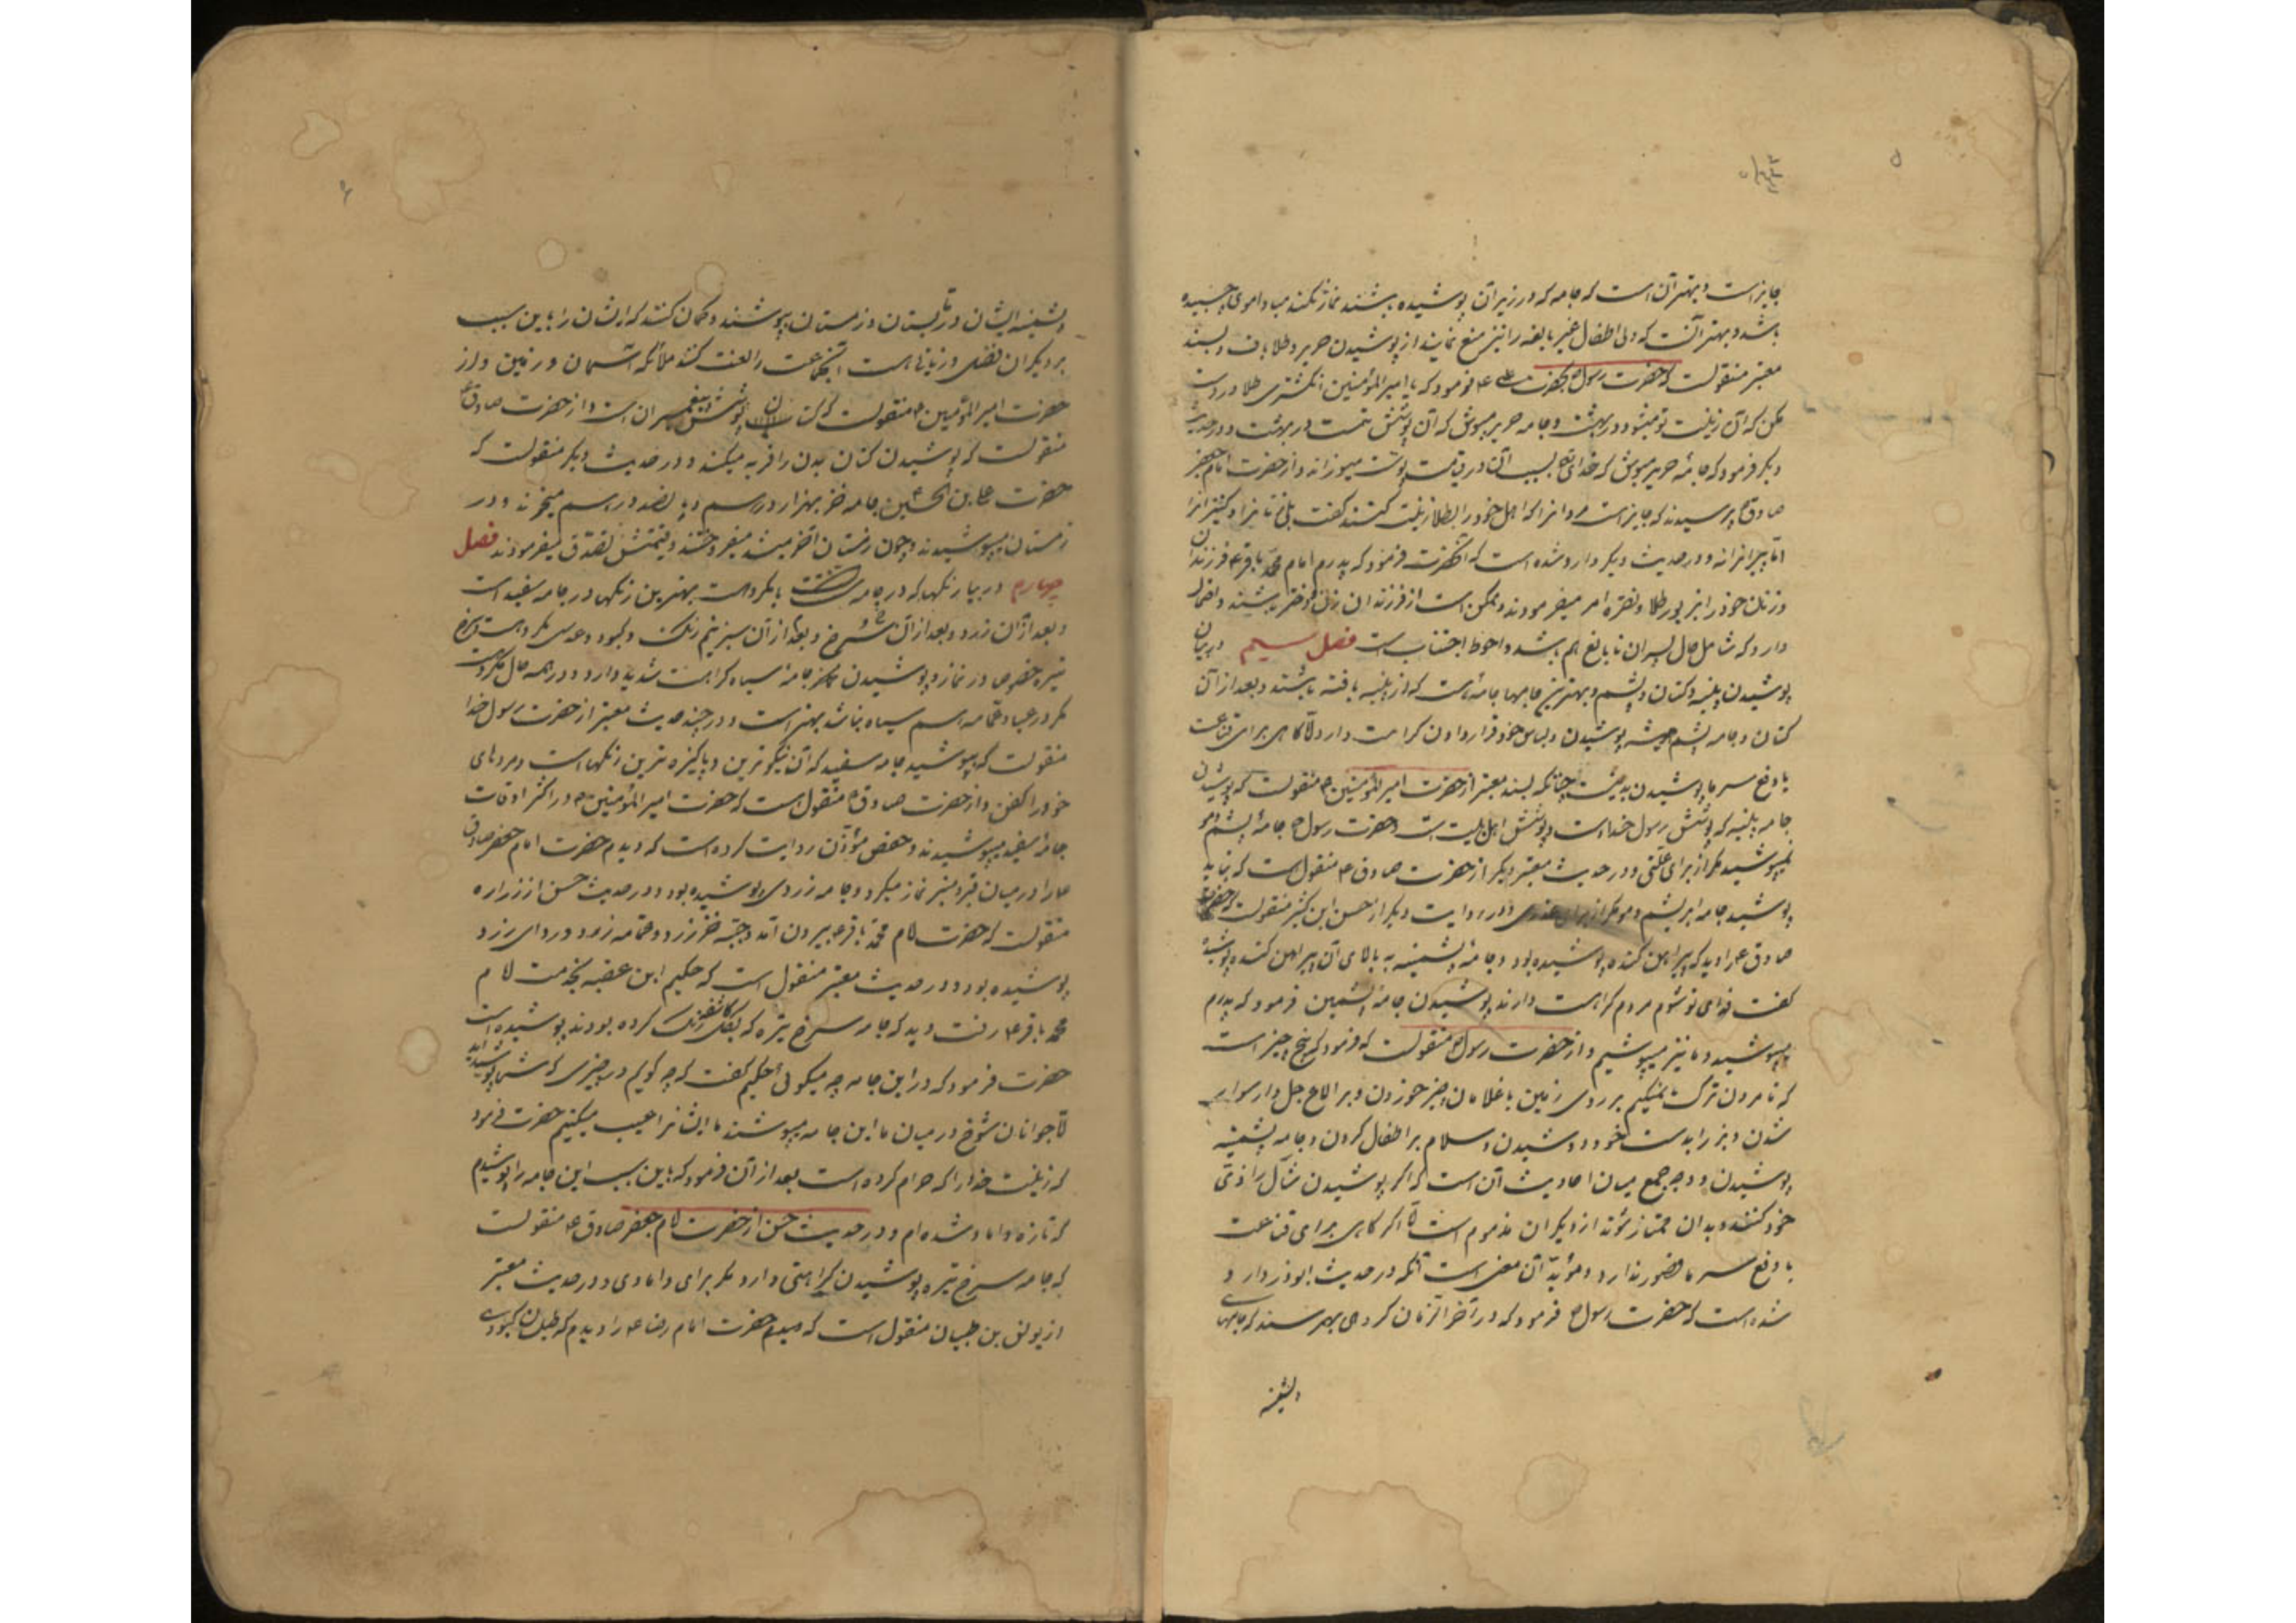 جایز است و بهتر آن است که جامه که در زیر آن پوشیده باشند نماز نکنند مبادا موی چسبیده
باشد و بهتر آنست که ولی اطفال غیر بالغه را نیز منع نمایند از پوشیدن حریر و طلاباف و بسند
معتبر منقولست که حضرت رسول ص بحضرت علی ع فرمود که یا امیر المؤمنین انکشتری طلا در دست
مکن که آن زینت تو میشود در بهشت و جامه حریر مپوش که آن پوشش تست در بهشت و در حدیث
دیگر فرمود که جامهٔ حریر مپوش که خدای تع بسبب آن در قیامت پوست میسوزاند و از حضرت امام جعفر
صادق ع پرسیدند که جایز است مردانرا که اهل خود را بطلا زینت کنند گفت بلی زنانرا و کنیزانرا
اما پسرانرا نه و در حدیث دیگر وارد شده است که آنحضرت فرمود که پدرم امام محمد باقر ع فرزندان
و زنان خود را بزیور طلا و نقره امر میفرمودند و ممکن است از فرزندان زنان و دختر باشند و احتمال
دارد که شامل حال پسران نابالغ هم باشد و احوط اجتناب است فصل سیم در بیان
پوشیدن پنبه و کتان و پشم و بهترین جامها جامهٔ است که از پنبه بافته باشند و بعد از آن
کتان و جامه پشم همیشه پوشیدن و لباس خود قرار دادن کراهت دارد و اما کاهی برای قناعت
یا دفع سرما پوشیدن بد نیست چنانکه بسند معتبر از حضرت امیر المؤمنین ع منقولست که پوشیدن
جامه پنبه که پوشش رسول خداست و پوشش اهل بیت است و حضرت رسول ص جامهٔ پشم و مو
نمیپوشید مگر از برای علتی و در حدیث معتبر دیگر از حضرت صادق ع منقول است که نباید
پوشید جامه ابریشم و مو مگر از برای عذری و در روایت دیگر از حسن ابن کثیر منقولست که حضرت
صادق ع را دید که پیراهن کنده پوشیده بود و جامهٔ پشمینه به بالای آن پیراهن کنده پوشیده
گفت فدای تو شوم مردم کراهت دارند پوشیدن جامهٔ پشمین فرمود که پدرم
میپوشید و ما نیز میپوشیم و از حضرت رسول ص منقولست که فرمود که پنج چیز است
که تا مردن ترک نمیکنم بر روی زمین با غلامان چیز خوردن و بر الاغ جل دار سوار
شدن و بز را بدست خود دوشیدن و سلام بر اطفال کردن و جامه پشمینه
پوشیدن و وجه جمع میان احادیث آن است که اگر پوشیدن شال را زی
خود کنند و بدان ممتاز شوند از دیگران مذموم است و اما اگر کاهی برای قناعت
یا دفع سرما قصور ندارد و مؤید آن معنی است آنکه در حدیث ابوذر وارد
شده است که حضرت رسول ص فرمود که در آخر الزمان گروهی بهم رسند که جامهای
و پشمینه
پشمینه ایشان در تابستان و زمستان بپوشند و گمان کنند که ایشان را باین سبب
بر دیگران فضلی و زیادتی هست آنجماعت را لعنت کنند ملائکه آسمان و زمین و از
حضرت امیر المؤمنین ع منقولست که کتان پوشش پیغمبران است و از حضرت صادق ع
منقولست که پوشیدن کتان بدن را فربه میکند و در حدیث دیگر منقولست که
حضرت علی بن الحسین ع جامه خز بهزار درهم و پانصد درهم میخریدند و در
زمستان میپوشیدند و چون زمستان آخر میشد میفروختند و قیمتش تصدق میفرمودند فصل
چهارم در بیان رنگها که در جامه سنت یا مکروه است بهترین رنگها در جامه سفید است
و بعد از آن زرد و بعد از آن سرخ و بعد از آن سبز نیم رنگ و کبود و عدسی مکروه است و سرخ
تیره خصوص در نماز و پوشیدن جامهٔ سیاه کراهت شدید دارد و در همه حال مکروهست
مگر در عبا و عمامه و اگر سیاه نباشد بهتر است و در چند حدیث معتبر از حضرت رسول خدا
منقولست که بپوشید جامه سفید که آن نیکوترین و پاکیزه ترین رنگهاست و مرده های
خود را کفن و از حضرت صادق ع منقول است که حضرت امیر المؤمنین ع در اکثر اوقات
جامهٔ سفید میپوشیدند و حفص مؤذن روایت کرده است که دیدم حضرت امام جعفر صادق
ع را در میان قبر و منبر نماز میکرد و جامه زردی پوشیده بود و در حدیث حسن از زراره
منقولست که حضرت امام محمد باقر ع بیرون آمد و جبه خز زرد و عمامه زرد و ردای زرد
پوشیده بود و در حدیث معتبر منقول است که حکیم ابن عتیبه بخدمت امام
محمد باقر ع رفت دید که جامه سرخ تیره که بگل کافشه رنگ کرده بودند پوشیده است
حضرت فرمود که در این جامه چه میگوئی حکیم گفت که چه گویم در چیزی که شما پوشیده اید
اما جوانان شوخ در میان ما این جامه میپوشند ما ایشانرا عیب میکنیم حضرت فرمود
که زینت خدا را که حرام کرده است بعد از آن فرمود که باین سبب این جامه را پوشیدم
که تازه داماد شده ام و در حدیث حسن از حضرت امام جعفر صادق ع منقولست
که جامه سرخ تیره پوشیدن کراهتی دارد مگر برای دامادی و در حدیث معتبر
از یونس بن ظبیان منقول است که حضرت امام رضا ع را دیدم که طیلسان کبودی